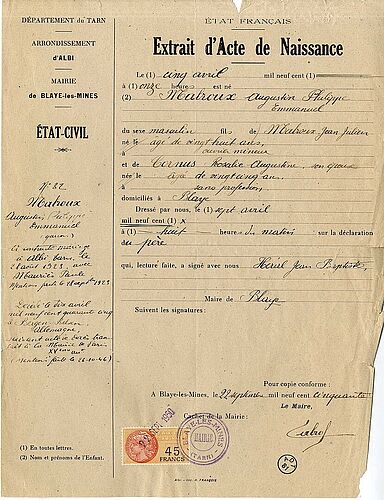 DÉPARTEMENT DU TARN
ARRONDISSEMENT
D'ALBI
MAIRIE
DE BLAYE-les-MINES
ÉTAT-CIVIL
N° 22
Matroux
Augustin Philippe
Emmanuel
Ci contracté mariage
à Albi Tarn, le
août 1923, avec
Mauriès Paule
Décédé le dix avril
mil neuf cent quarante cinq
à Bergen Belsen
Allemagne,
suivant acte
à la Mairie de Paris
XVème arrt
28-10-46)
ÉTAT FRANÇAIS
Extrait d'Acte de Naissance
Le (1) cinq avril mil neuf cent (1)
à (1) onze heures est né
(2) Matroux Augustin Philippe
Emmanuel
du sexe masculin fils de Matroux Jean Julien
né le âgé de vingt huit ans,
ouvrier mineur
et de Cornus Rosalie Augustine, son épouse
née le âgée de vingt cinq ans
sans profession
domiciliés à Blaye
Dressé par nous, le (1) sept avril
mil neuf cent (1) x
à (1) huit heures du matin sur la déclaration
du père
qui, lecture faite, a signé avec nous Jean Baptiste,
Maire de Blaye
Suivent les signatures:
Pour copie conforme :
A Blaye-les-Mines, le 22 septembre mil neuf cent cinquante
Le Maire,
Cachet de la Mairie :
SEP. 1950
45
FRANCS
BLAYE-LES-MINES
MAIRIE
(TARN)
(1) En toutes lettres.
(2) Nom et prénoms de l'Enfant.